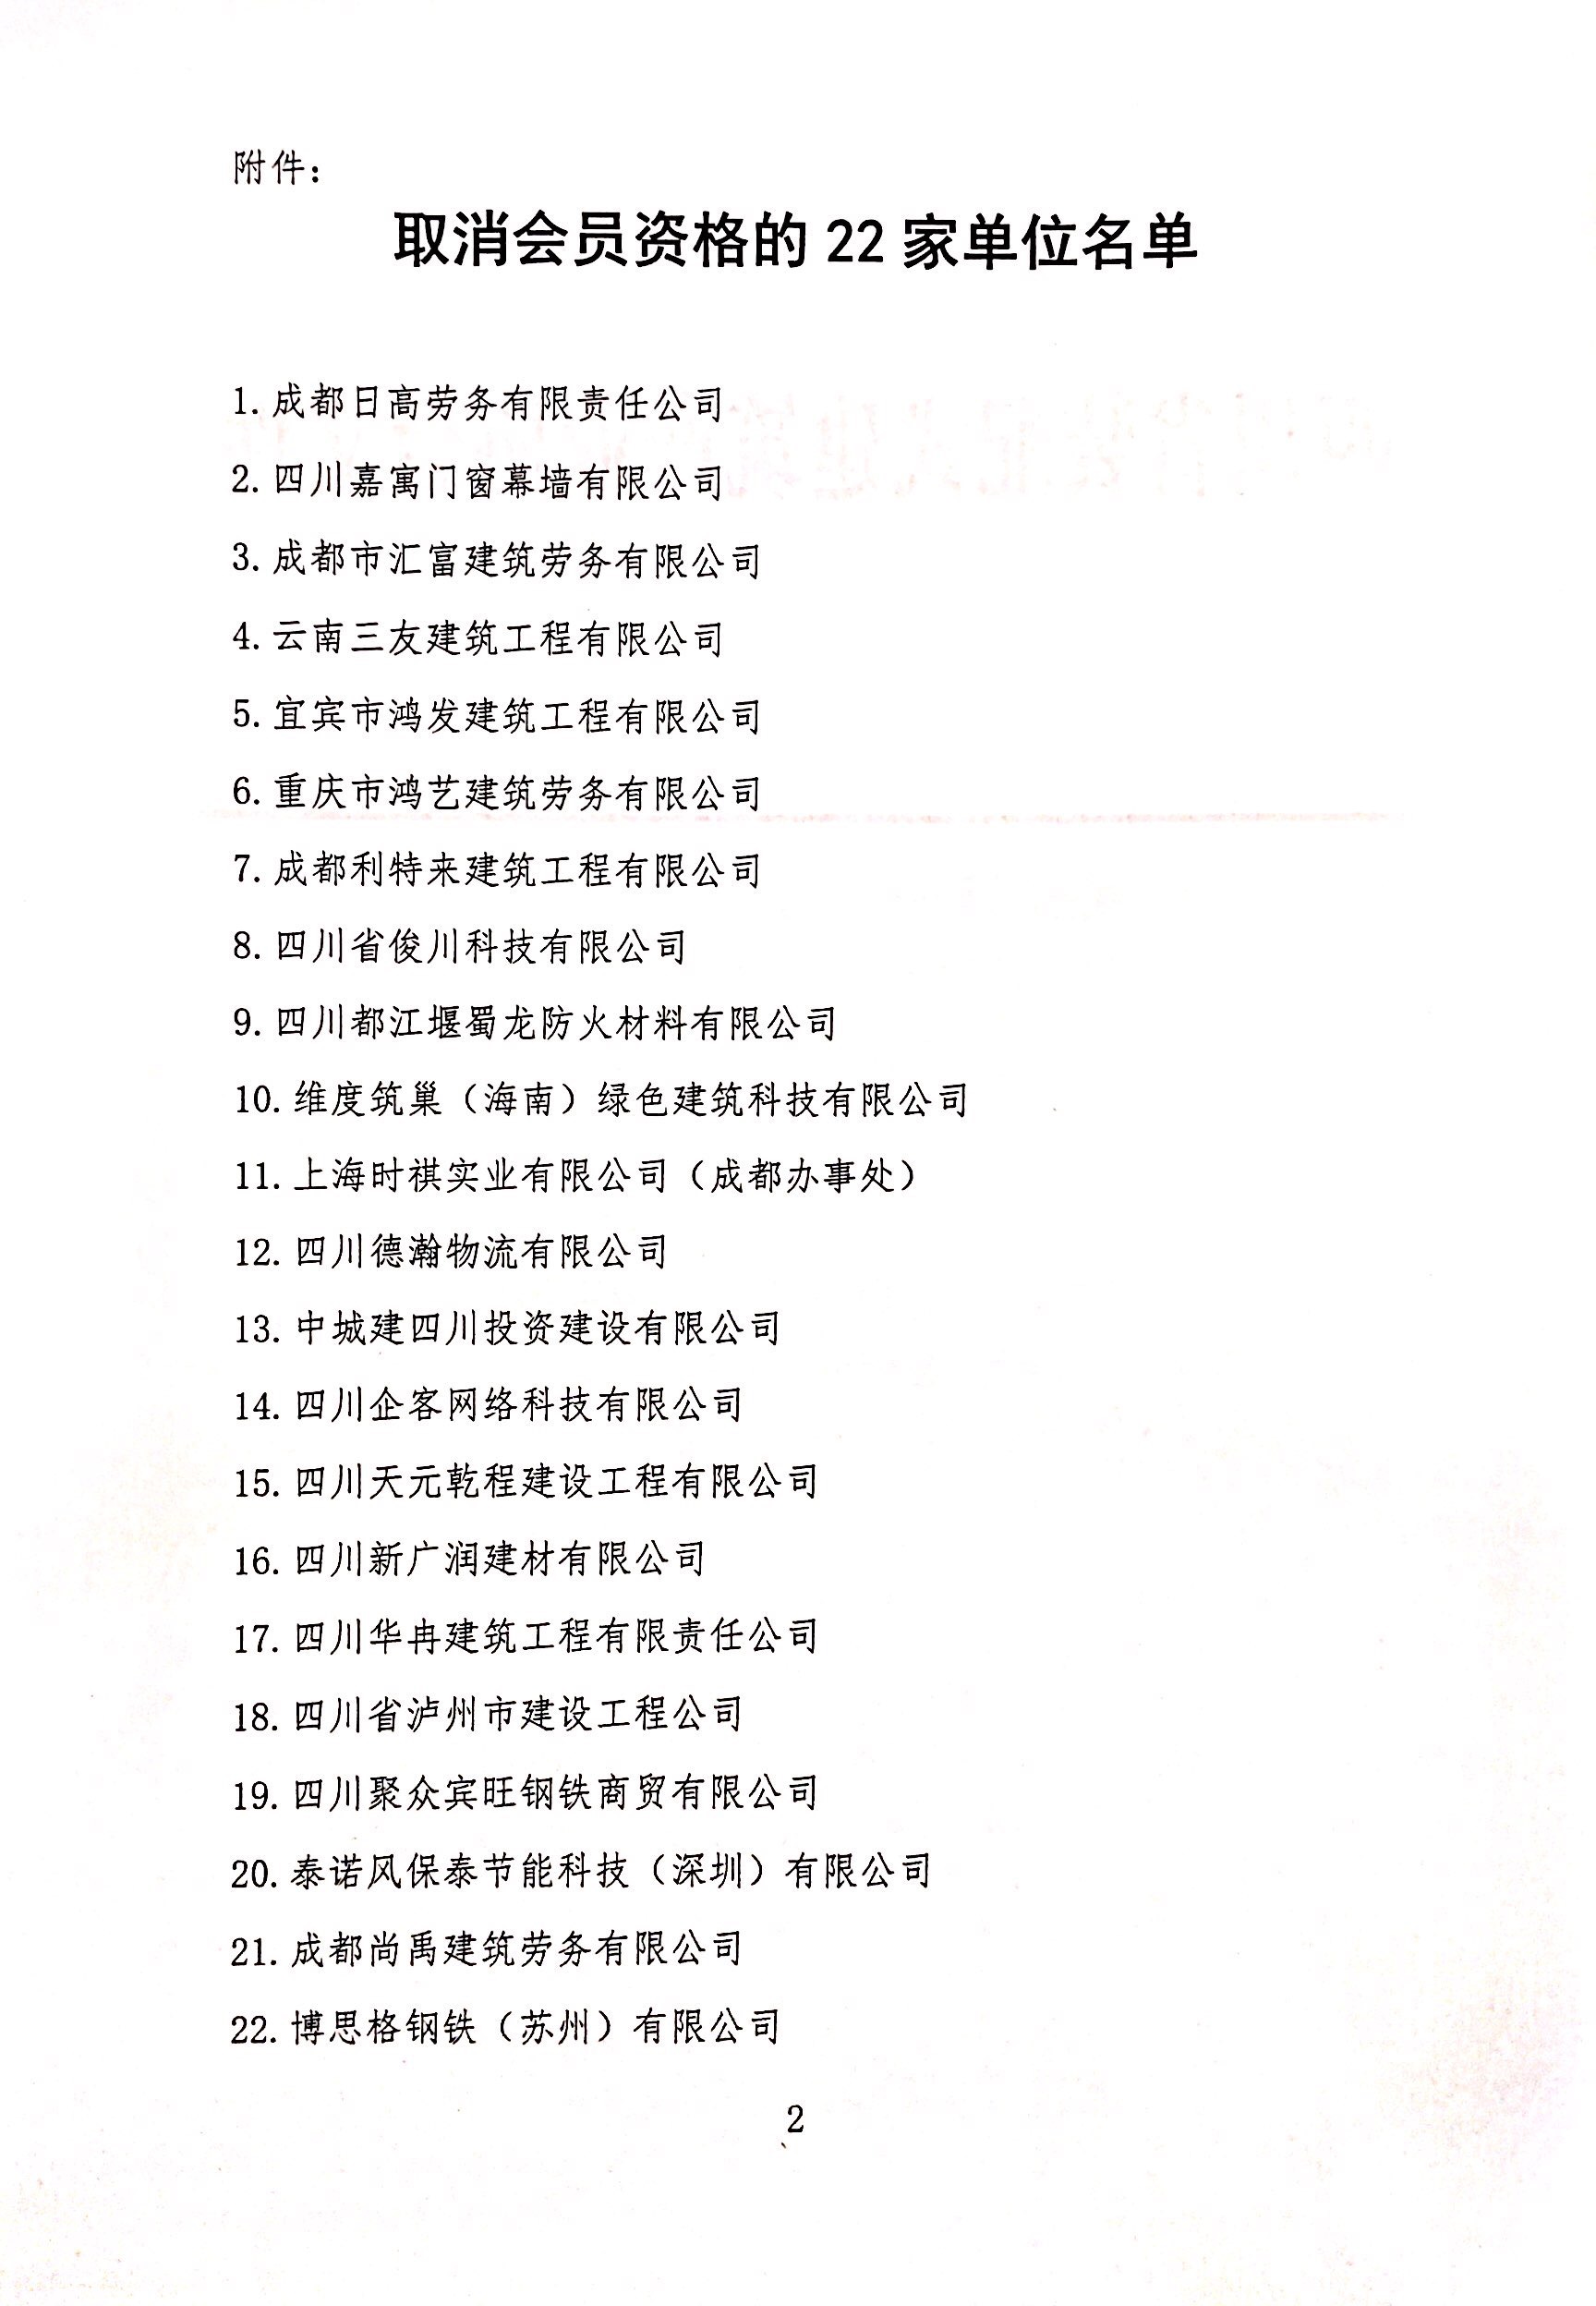 附件：
取消会员资格的 22 家单位名单
1. 成都日高劳务有限责任公司
2. 四川嘉寓门窗幕墙有限公司
3. 成都市汇富建筑劳务有限公司
4. 云南三友建筑工程有限公司
5. 宜宾市鸿发建筑工程有限公司
6. 重庆市鸿艺建筑劳务有限公司
7. 成都利特来建筑工程有限公司
8. 四川省俊川科技有限公司
9. 四川都江堰蜀龙防火材料有限公司
10. 维度筑巢（海南）绿色建筑科技有限公司
11. 上海时祺实业有限公司（成都办事处）
12. 四川德瀚物流有限公司
13. 中城建四川投资建设有限公司
14. 四川企客网络科技有限公司
15. 四川天元乾程建设工程有限公司
16. 四川新广润建材有限公司
17. 四川华冉建筑工程有限责任公司
18. 四川省泸州市建设工程公司
19. 四川聚众宾旺钢铁商贸有限公司
20. 泰诺风保泰节能科技（深圳）有限公司
21. 成都尚禹建筑劳务有限公司
22. 博思格钢铁（苏州）有限公司
2